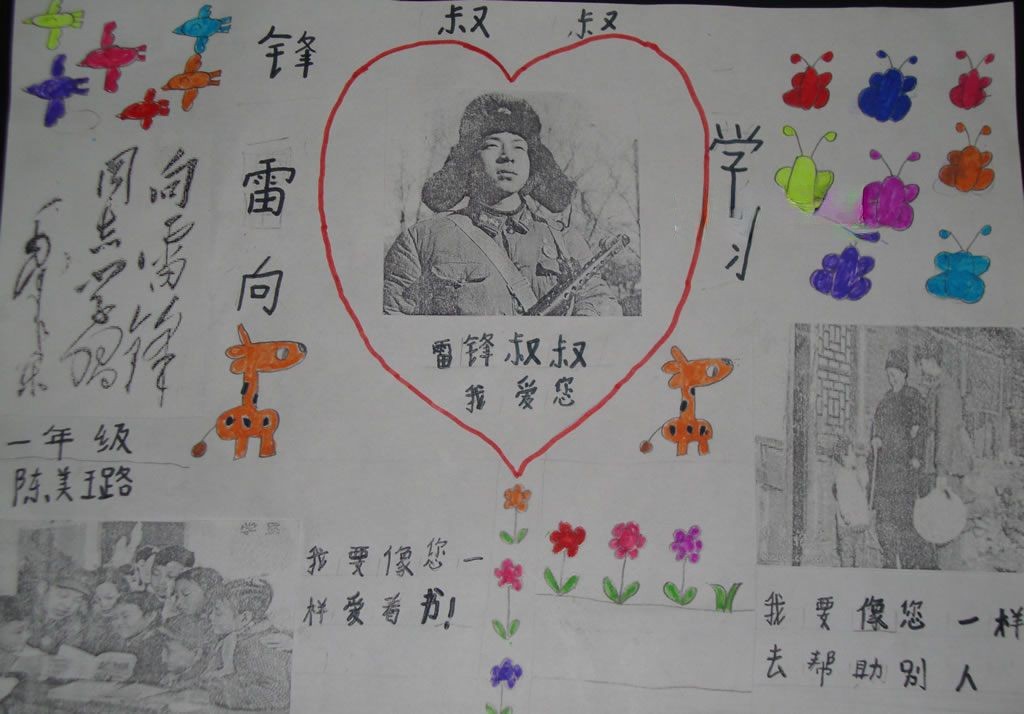 向雷锋叔叔学习
向雷锋
同志学習
毛泽东
雷锋叔叔
我爱您
一年级
陈美璐
我要像您一
样爱着书!
我要像您一样
去帮助别人